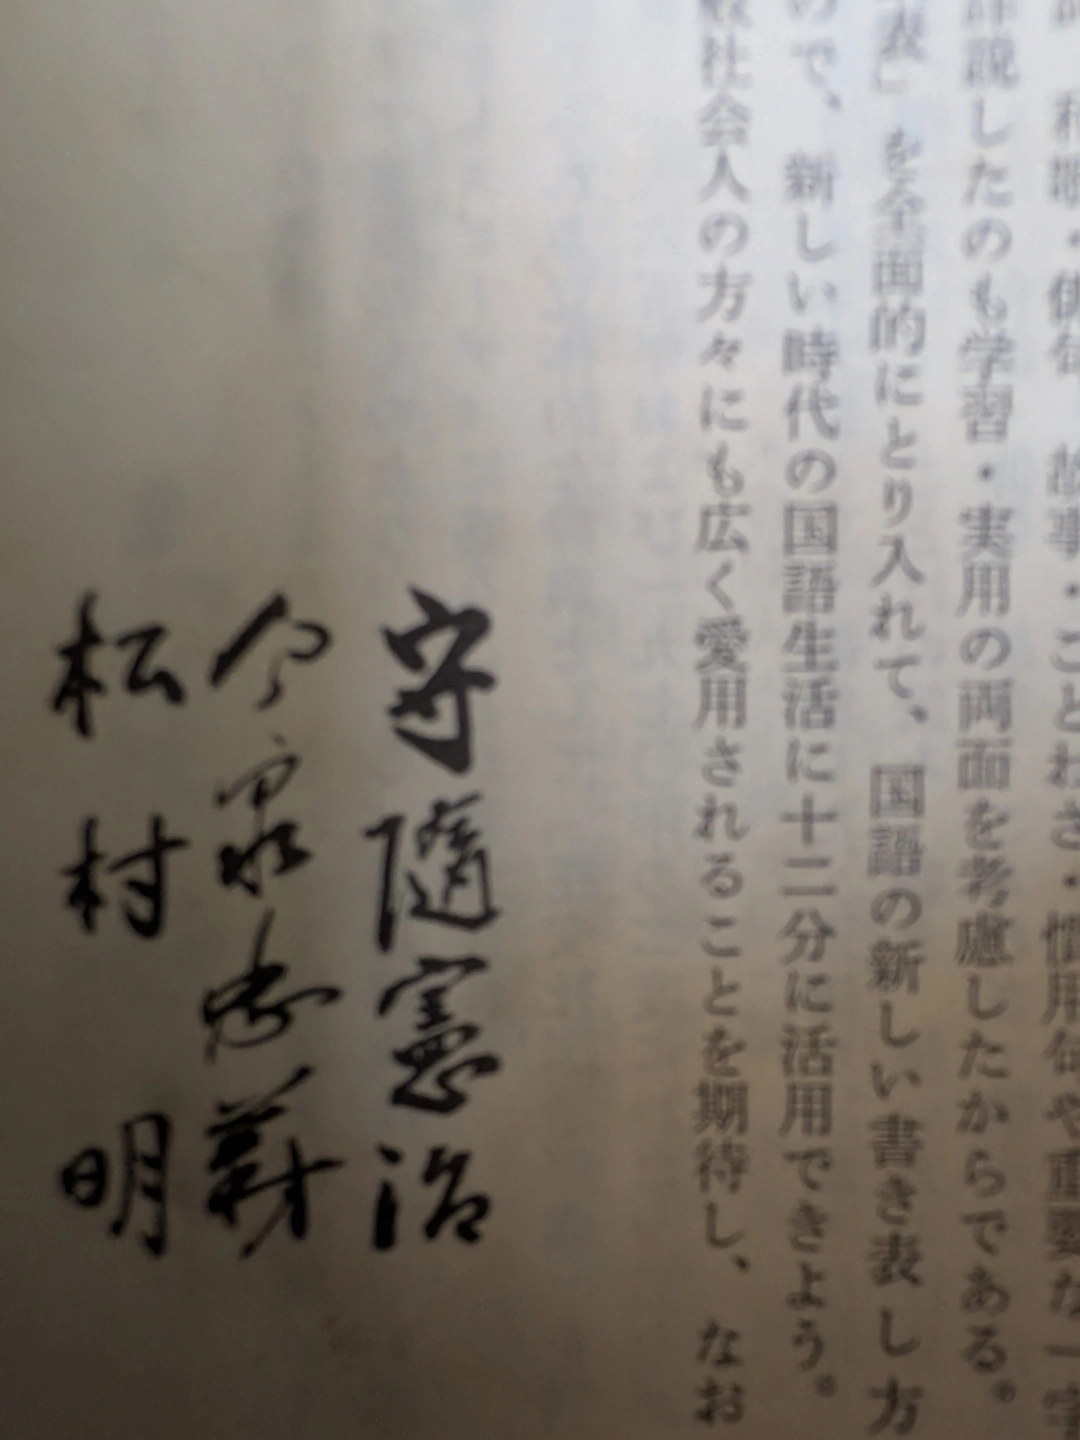 和歌・俳句・故事・ことわざ・慣用句や重要な一字
詳説したのも学習・実用の両面を考慮したからである。
表」を全面的にとり入れて、国語の新しい書き表し方
ので、新しい時代の国語生活に十二分に活用できよう。
般社会人の方々にも広く愛用されることを期待し、なお
守隨憲治
今泉忠義
松村明